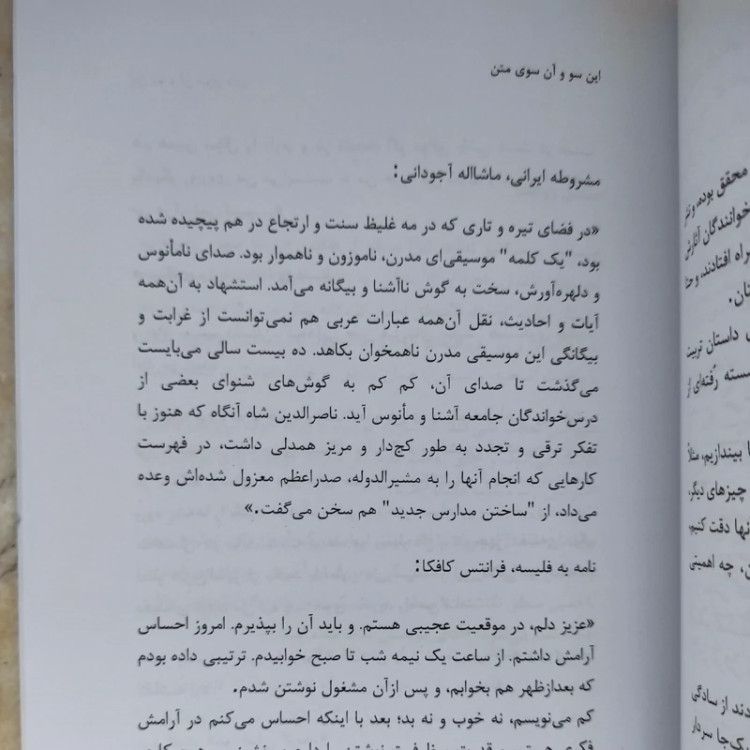 این سو و آن سوی متن
مشروطه ایرانی، ماشااله آجودانی:
«در فضای تیره و تاری که در مه غلیظ سنت و ارتجاع در هم پیچیده شده
بود، "یک کلمه" موسیقی‌ای مدرن، ناموزون و ناهموار بود. صدای نامأنوس
و دلهره‌آورش، سخت به گوش ناآشنا و بیگانه می‌آمد. استشهاد به آن‌همه
آیات و احادیث، نقل آن‌همه عبارات عربی هم نمی‌توانست از غرابت و
بیگانگی این موسیقی مدرن ناهمخوان بکاهد. ده بیست سالی می‌بایست
می‌گذشت تا صدای آن، کم کم به گوش‌های شنوای بعضی از
درس‌خواندگان جامعه آشنا و مأنوس آید. ناصرالدین شاه آنگاه که هنوز با
تفکر ترقی و تجدد به طور کج‌دار و مریز همدلی داشت، در فهرست
کارهایی که انجام آنها را به مشیرالدوله، صدراعظم معزول شده‌اش وعده
می‌داد، از "ساختن مدارس جدید" هم سخن می‌گفت.»
نامه به فلیسه، فرانتس کافکا:
«عزیز دلم، در موقعیت عجیبی هستم. و باید آن را بپذیرم. امروز احساس
آرامش داشتم. از ساعت یک نیمه شب تا صبح خوابیدم. ترتیبی داده بودم
که بعدازظهر هم بخوابم، و پس ازآن مشغول نوشتن شدم.
کم می‌نویسم، نه خوب و نه بد؛ بعد با اینکه احساس می‌کنم در آرامش
محقق بوده، و
خوانندگان آثارش
راه افتادند، و
داستان تربیت
رُفته‌ای از
بیندازیم، مثلاً
چیزهای دیگر،
دقت کنیم
، چه اهمیتی
از سادگی
سردار